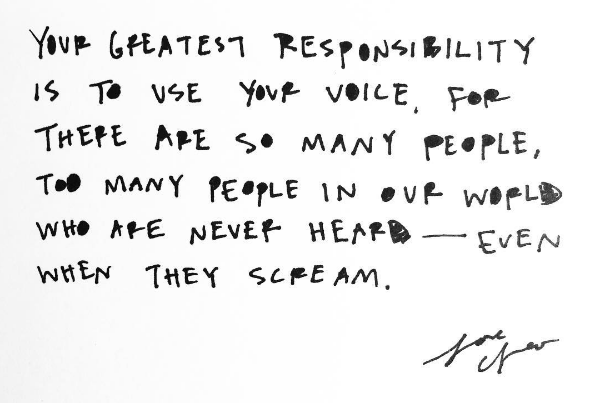 YOUR GREATEST RESPONSIBILITY
IS TO USE YOUR VOICE. FOR
THERE ARE SO MANY PEOPLE,
TOO MANY PEOPLE IN OUR WORLD
WHO ARE NEVER HEARD — EVEN
WHEN THEY SCREAM.